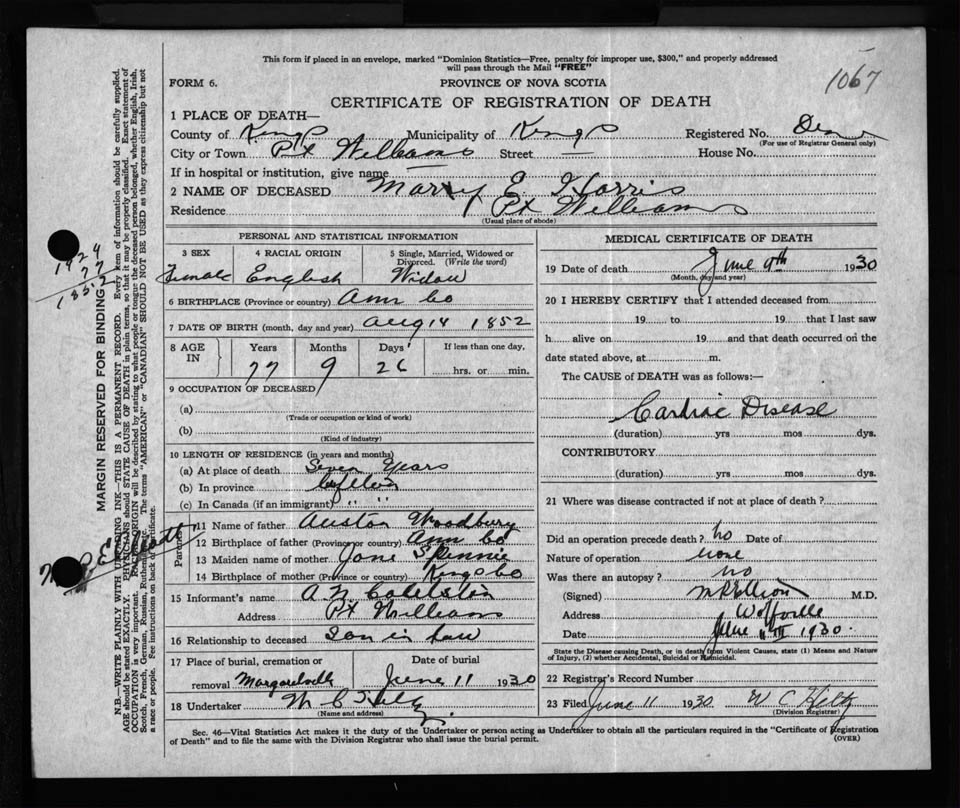 This form if placed in an envelope, marked "Dominion Statistics—Free, penalty for improper use, $300," and properly addressed
will pass through the Mail "FREE"
1067
FORM 6.
PROVINCE OF NOVA SCOTIA
CERTIFICATE OF REGISTRATION OF DEATH
1 PLACE OF DEATH—
County of Kings Municipality of Kings Registered No.
(For use of Registrar General only)
City or Town Pt Williams Street — House No.
If in hospital or institution, give name —
2 NAME OF DECEASED Mary E. Harris
Residence Pt Williams
(Usual place of abode)
PERSONAL AND STATISTICAL INFORMATION
3 SEX 4 RACIAL ORIGIN 5 Single, Married, Widowed or
Divorced. (Write the word)
Female English Widow
6 BIRTHPLACE (Province or country) Ann Co
7 DATE OF BIRTH (month, day and year) Aug 14 1852
8 AGE IN Years Months Days If less than one day,
77 9 26 hrs. or min.
9 OCCUPATION OF DECEASED
(a)
(Trade or occupation or kind of work)
(b)
(Kind of industry)
10 LENGTH OF RESIDENCE (in years and months)
(a) At place of death Seven Years
(b) In province Lifetime
(c) In Canada (if an immigrant) " "
Parents
11 Name of father Auston Woodbury
12 Birthplace of father (Province or country) Ann Co
13 Maiden name of mother Jane Spinnie
14 Birthplace of mother (Province or country) Kings Co
15 Informant's name A. N.
Address Pt Williams
16 Relationship to deceased Son in law
17 Place of burial, cremation or Date of burial
removal Margaretville June 11 1930
18 Undertaker W C Hiltz
(Name and address)
MEDICAL CERTIFICATE OF DEATH
19 Date of death June 9th 1930
(Month, day and year)
20 I HEREBY CERTIFY that I attended deceased from
19 to 19 that I last saw
h alive on 19 and that death occurred on the
date stated above, at m.
The CAUSE of DEATH was as follows:—
Cardiac Disease
(duration) yrs mos dys.
CONTRIBUTORY
(duration) yrs mos dys.
21 Where was disease contracted if not at place of death?
Did an operation precede death? no Date of
Nature of operation none
Was there an autopsy? no
(Signed) M R Elliott M.D.
Address Wolfville
Date June 11th 1930.
State the Disease causing Death, or in death from Violent Causes, state (1) Means and Nature
of Injury, (2) whether Accidental, Suicidal or Homicidal.
22 Registrar's Record Number
23 Filed June 11 1930 W C Hiltz
(Division Registrar)
Sec. 46—Vital Statistics Act makes it the duty of the Undertaker or person acting as Undertaker to obtain all the particulars required in the "Certificate of Registration
of Death" and to file the same with the Division Registrar who shall issue the burial permit.
(OVER)
MARGIN RESERVED FOR BINDING
N.B.—WRITE PLAINLY WITH UNFADING INK—THIS IS A PERMANENT RECORD. Every item of information should be carefully supplied.
AGE should be stated EXACTLY. PHYSICIANS should STATE CAUSE OF DEATH in plain terms, so that it may be properly classified. Exact statement of
OCCUPATION is very important. RACIAL ORIGIN will be described by stating to what people or tongue the deceased person belonged, whether English, Irish,
Scotch, French, German, Russian, Ruthenian, etc. The terms "AMERICAN" or "CANADIAN" SHOULD NOT BE USED as they express citizenship but not
a race or people. See instructions on back of certificate.
1929
77
1852